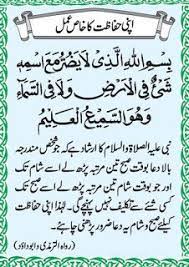 اپنی حفاظت کا خاص عمل
بِسْمِ اللهِ الَّذِيْ لَا يَضُرُّ مَعَ اسْمِهٖ
شَيْءٌ فِي الْاَرْضِ وَلَا فِي السَّمَآءِ
وَهُوَ السَّمِيْعُ الْعَلِيْمُ
نبی علیہ الصلاۃ والسلام کا ارشاد ہے کہ جو شخص مندرجہ
بالا دعا بوقت صبح تین مرتبہ پڑھ لے اسے شام تک
اور جو بوقت شام تین مرتبہ پڑھ لے اسے صبح تک
کسی شئے سے تکلیف نہیں پہنچے گی۔ لہٰذا اپنی حفاظت
کیلئے صبح و شام یہ دعا ضرور پڑھنی چاہئے۔
(رواہ الترمذی وابوداؤد)